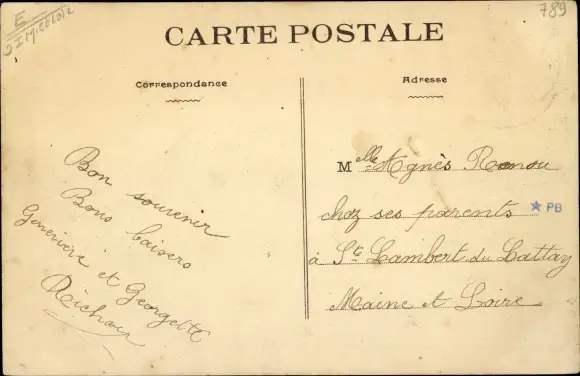 E
789
CARTE POSTALE
Correspondance
Adresse
Bon souvenir
Bons baisers
Geneviève et Georgette
Melle Agnès Renou
chez ses parents
PB
à St Lambert du Lattay
Maine et Loire